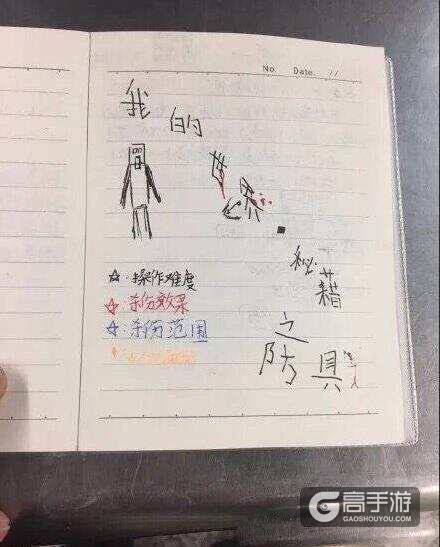 No. Date. / /
我的
世界
秘藉
之
防具
☆·操作难度
☆杀伤效果
☆杀伤范围
高手游
GAOSHOUYOU.COM